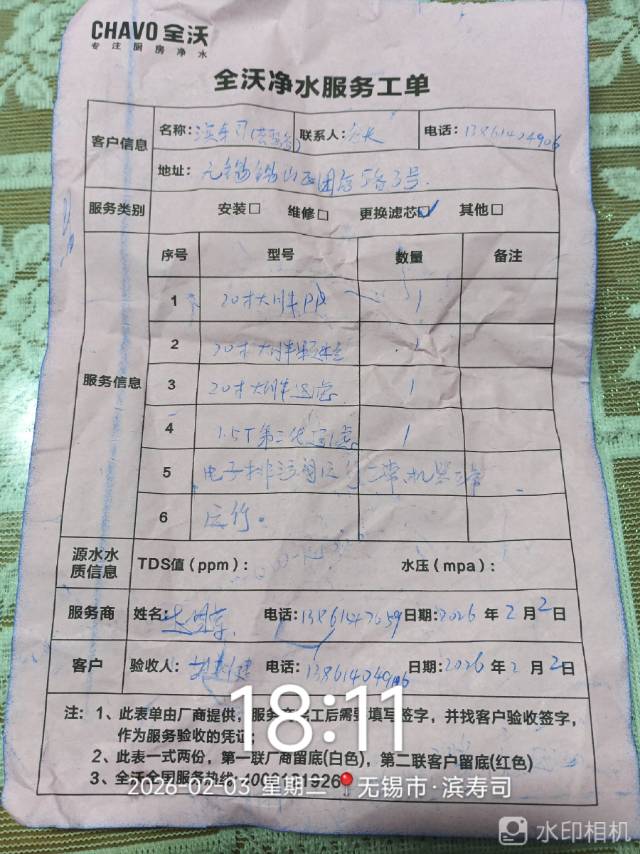 CHAVO 全沃
专注厨房净水
全沃净水服务工单
客户信息 名称: 滨寿司 联系人: 店长 电话: 13861404906
地址: 无锡锡山区团结5路3号
服务类别 安装□ 维修□ 更换滤芯☑ 其他□
服务信息 序号 型号 数量 备注
1 20寸大胖PP 1
2 20寸大胖颗粒 1
3 20寸大胖 1
4 1.5T第二代 1
5 电子排 正常,机器正常
6 运行。
源水水质信息 TDS值(ppm): 水压(mpa):
服务商 姓名: 电话: 13861477659 日期: 2026 年 2 月 2 日
客户 验收人: 电话: 13861404906 日期: 2026 年 2 月 2 日
注: 1、此表单由厂商提供,服务完工后需要填写签字,并找客户验收签字,
作为服务验收的凭证;
2、此表一式两份,第一联厂商留底(白色),第二联客户留底(红色)
3、全沃全国服务热线: 4008131926
18:11
2026-02-03 星期二 无锡市·滨寿司
水印相机